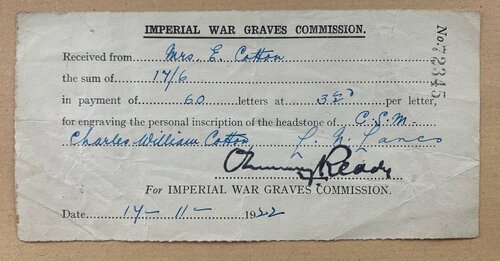 IMPERIAL WAR GRAVES COMMISSION.
No. 72345
Received from Mrs. E. Cotton
the sum of 17/6
in payment of 60 letters at 3½d per letter,
for engraving the personal inscription of the headstone of C.S.M.
Charles William Cotton L. N. Lancs
Reade
For IMPERIAL WAR GRAVES COMMISSION.
Date 17-11-1922